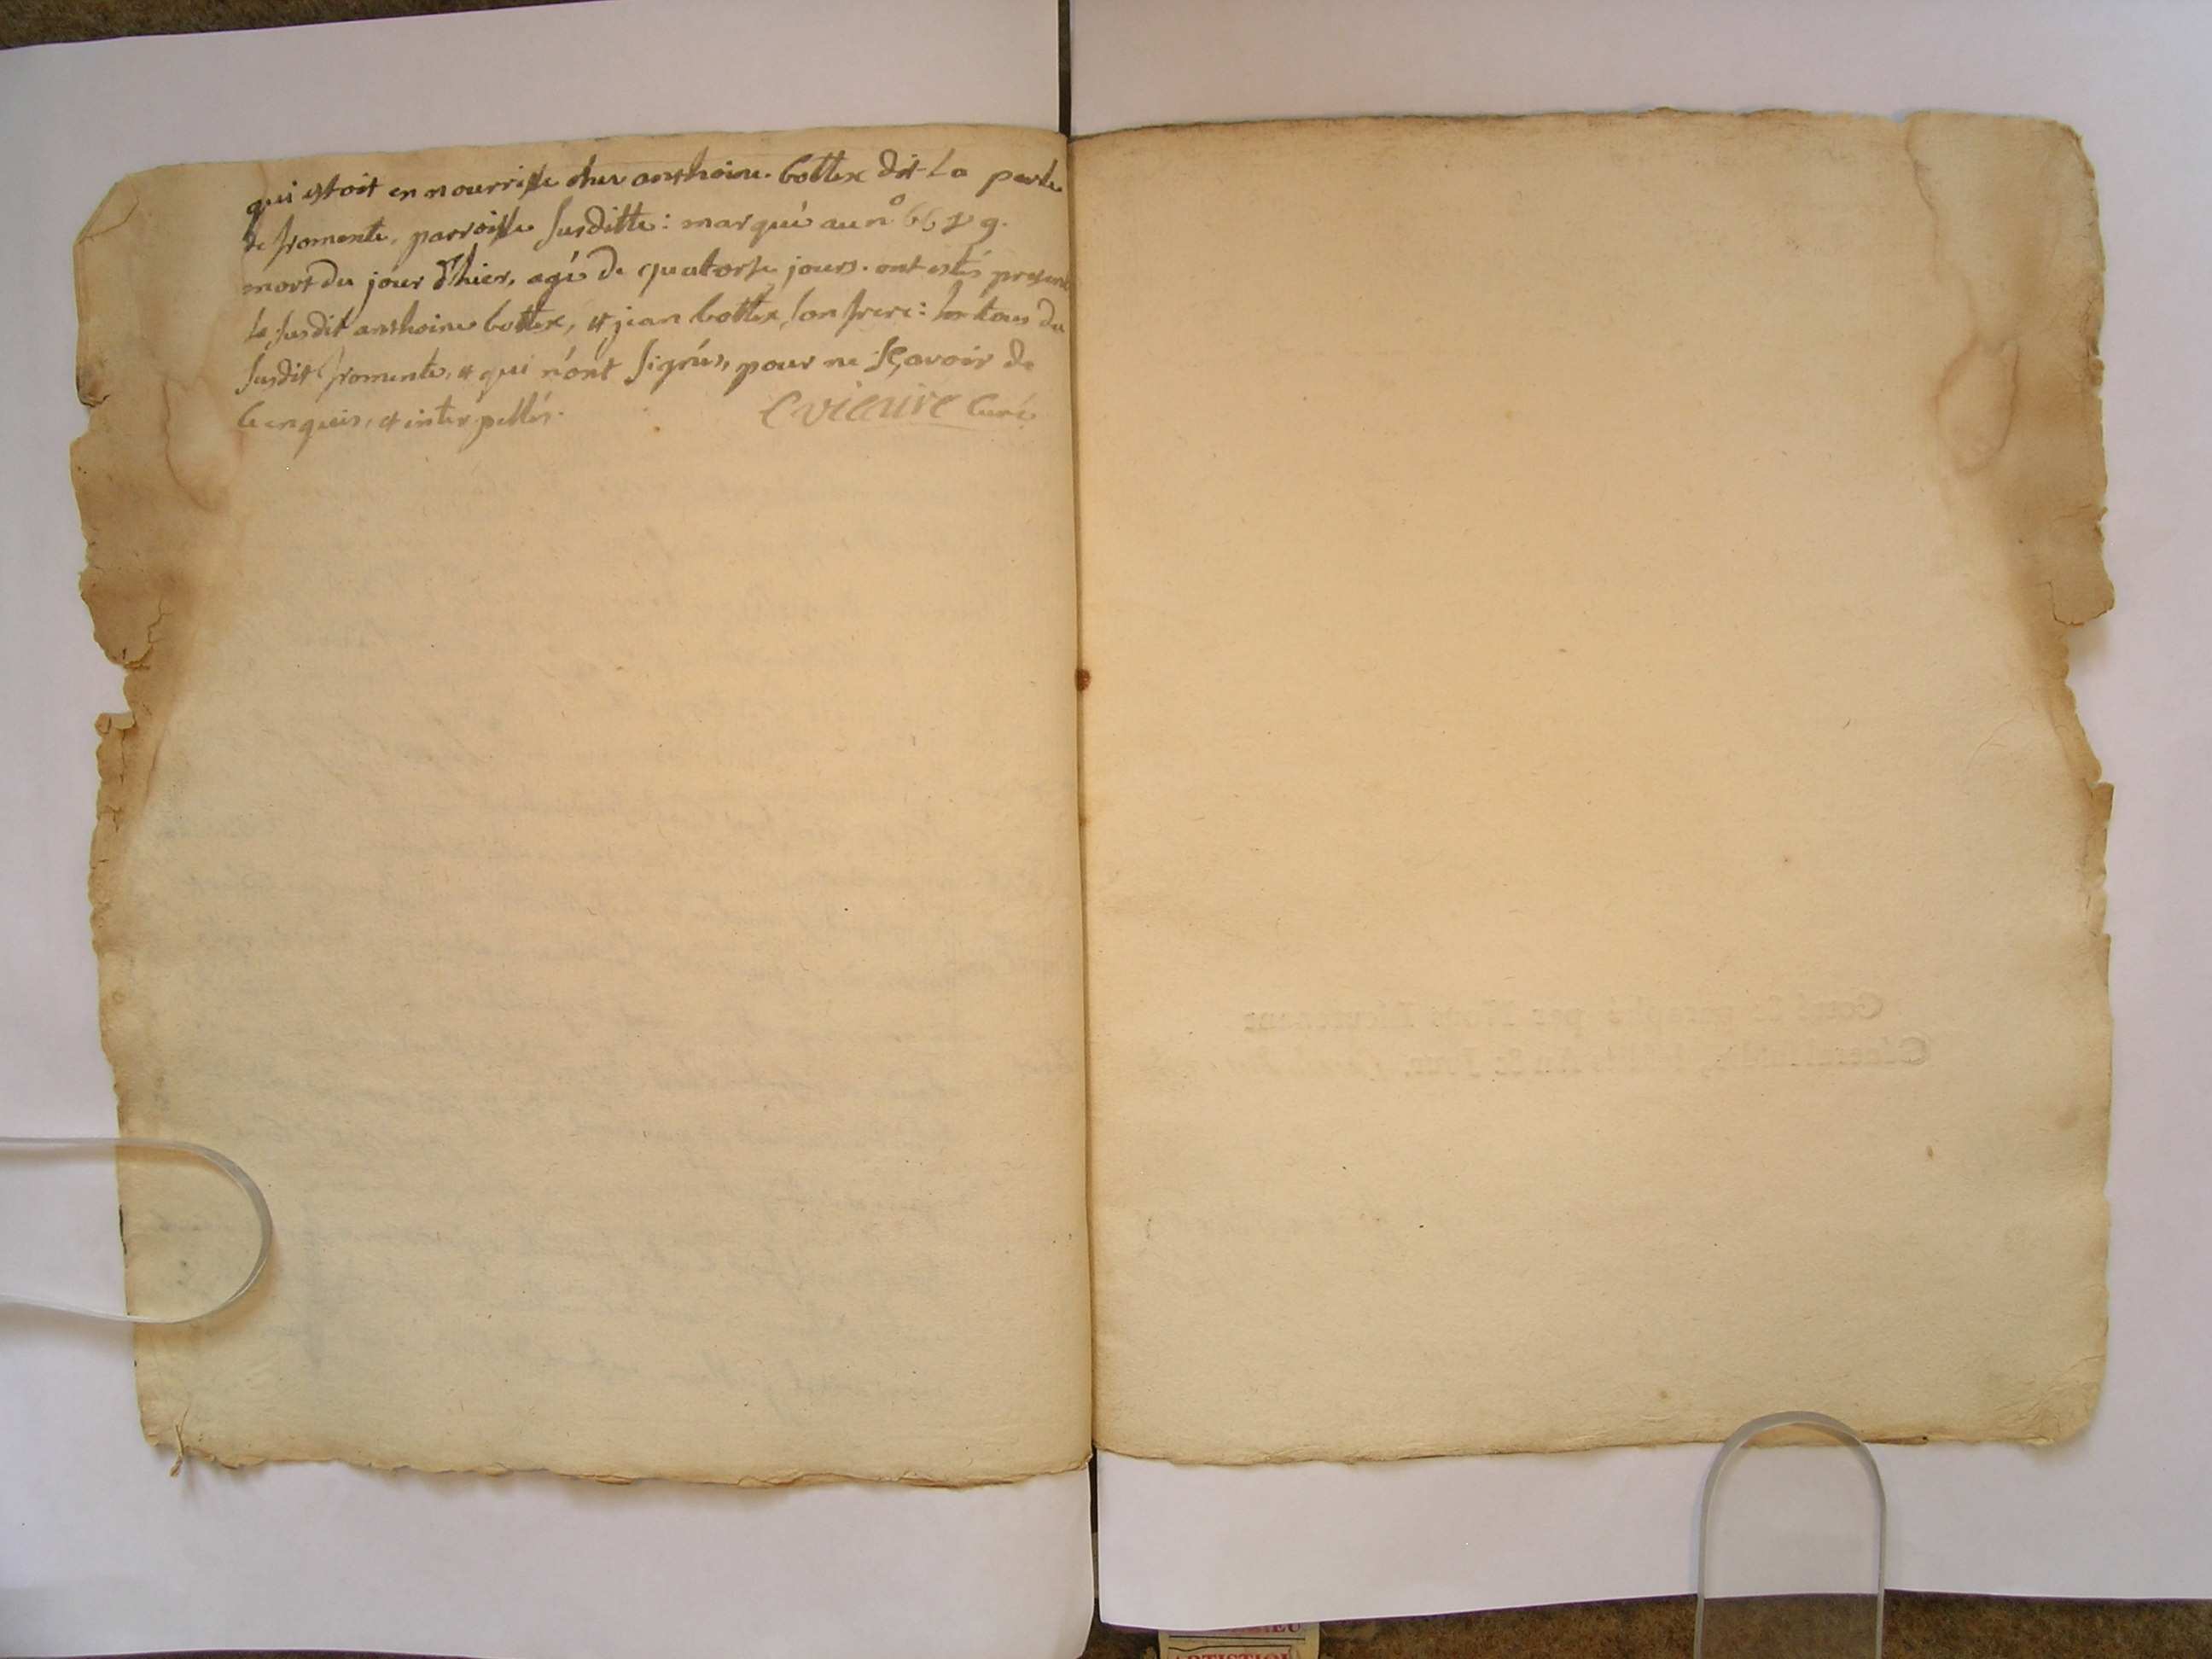 qui estoit en nourrisse ches anthoine bottex dit La perle
de fromente, parroisse susditte: marqué au n°
mort du jour d'hier, agé de quatorse jours. ont estés present
le susdit anthoine bottex, et jean bottex, son frere: tous du
susdit fromente, et qui n'ont signés, pour ne sçavoir de
ce enquis, et interpellés.
Evieuire Curé